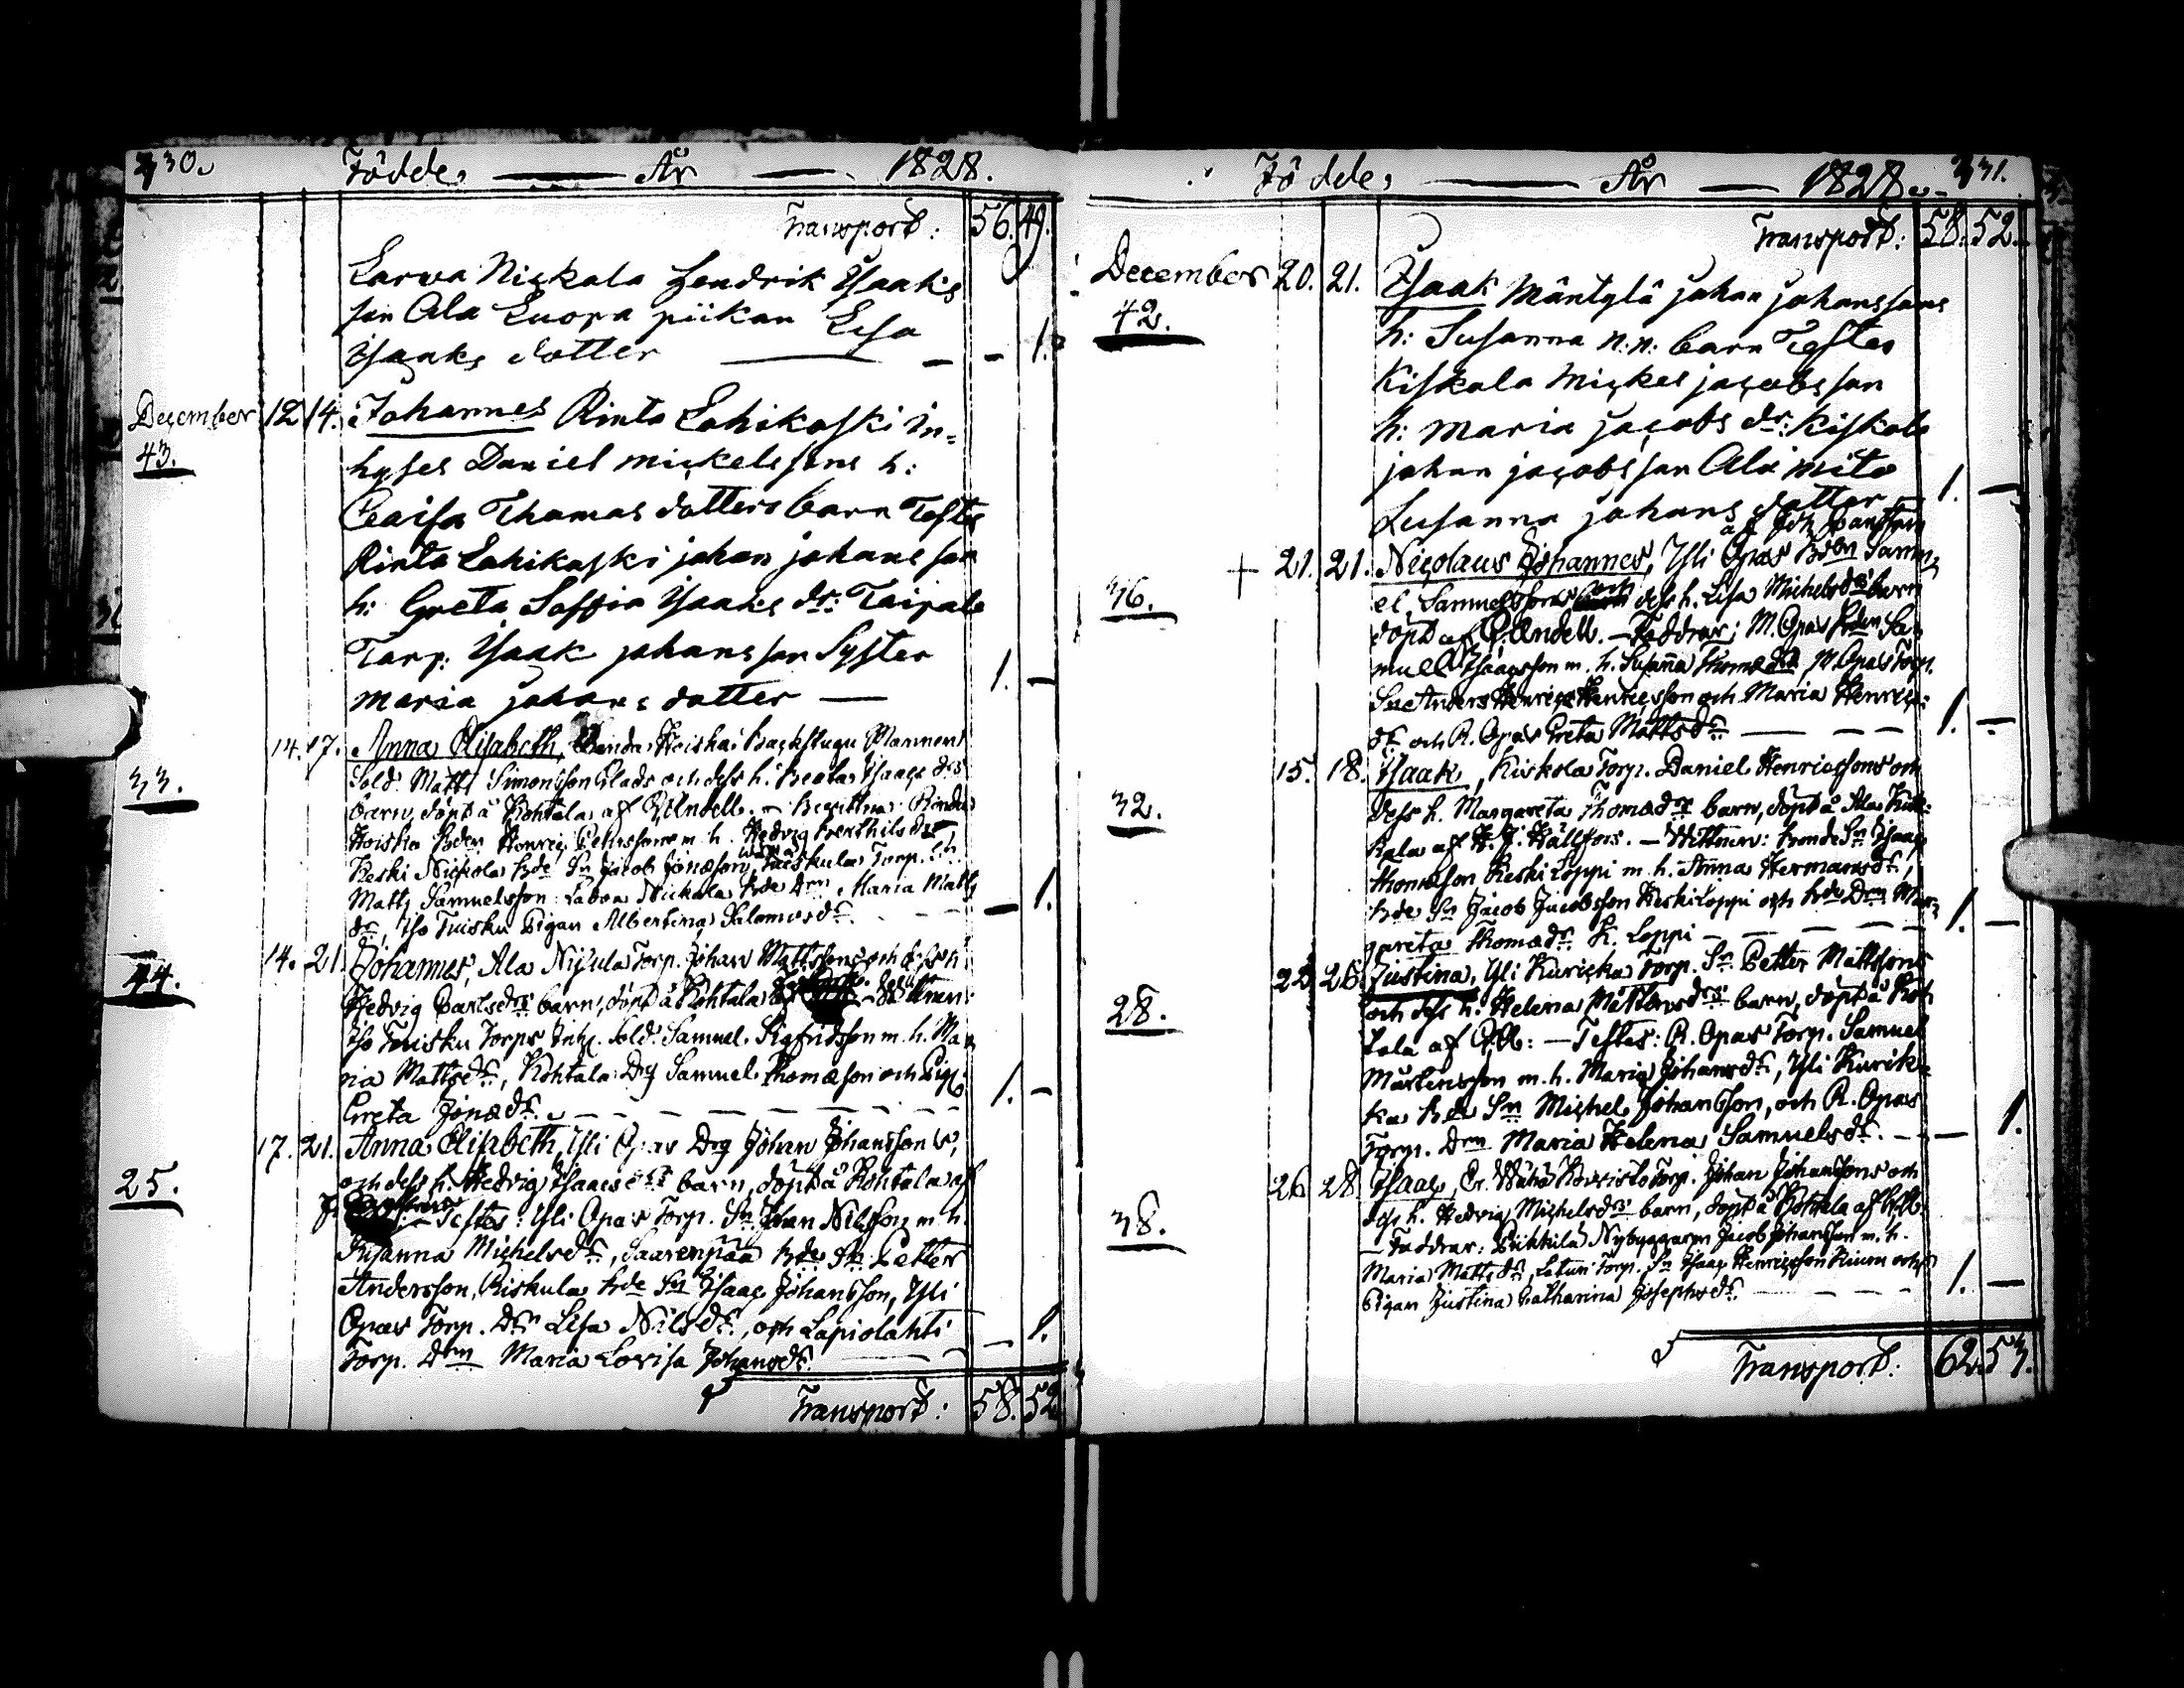 330. Födde, — År — 1828.
Transport: 56. 49.
Larwa Nickala Hendrik Ysaaks
son Ala Luopa piikan Lisa
Ysaaks dotter — - 1.
December 12 14. Johannes Rinta Lahikoski in=
43. hyses Daniel Mickelssons h:
Caisa Thomas dotters barn Testes
Rinta Lahikoski johan johansson
h: Greta Soffia Ysaaks dr: Taipale
Torp: Ysaak johansson Syster
maria johans dotter — 1. -
14. 17. Anna Elisabeth, Hoiska Backstugu Mannen
33. Sold. Matts Simonsson Glads och dess h. Beata Isaacs drs
barn, döpt å Kohtala af Andell. —
Hoiska Bden Henric m. h. Hedvig Berthils dr,
Keski Nickola Bde Sn Jacob Jonæson, Kaiskula Torp. Sn
Matts Samuelsson Larva Nickola Bde Drn Maria Matts
dr, Iso Tuisku Pigan Albertina Salomonsdr. — 1.
14. 21. Johannes, Ala Nickula Torp. Johan Mattssons och dess h:
44. Hedvig Carlsdrs barn, döpt å Kohtala af
Iso Tuisku Torps Inh. Sold. Samuel Sigfridsson m. h. Ma
ria Mattsdr, Kohtala Drg Samuel Thomæson och Pig.
Greta Jonædr. — 1. -
17. 21. Anna Elisabeth, Yli Opas Drg Johan Johanssons,
25. och dess h. Hedvig Isaacsdrs barn, döpt å Kohtala af
Testes: Yli Opas Torp. Sn Johan Nilsson m. h.
Susanna Michelsdr, Saarenpää Bde Sn Petter
Andersson, Kiskula Bde Sn Isaac Johansson, Yli
Opas Torp. Dr Lisa Nilsdr, och Lapiolahti
Torp. Drn Maria Lovisa Johansdr. — 1.
Transport: 58. 52
Födde, — År — 1828. 331.
Transport: 58. 52.
December 20. 21. Ysaak Mäntylä johan johanssons
42. h: Susanna n.n: barn Testes
Kiskala Mickel jacobsson
h: maria jacobs dr: Kiskala
johan jacobsson Ala mito
Susanna johans dotter — 1. —
af Joh.
+ 21. 21. Nicolaus Johannes, Yli Opas Bden Samu=
36. el Samuelssons och dess h. Lisa Michelsdrs barn
döpt af Andell. — Faddrar: M. Opas Bden Sa
muel Isaacsson m. h. Susanna Thomædr, M. Opas Torp.
Sn Anders Henricsson och Maria Henrics
dr och R. Opas Greta Mattsdr — 1. -
15. 18. Isaak, Kiskola Torp. Daniel Henricssons och
32. dess h. Margareta Thomædrs barn, döpt å Ala
kala af H. J. Hällfors. — Wittnen: Bonde Sn Isaac
Thomæson Keski Loppi m. h. Anna Hermansdr,
Bde Sn Jacob Jacobsson Keski Loppi och Bde Drn Mar=
gareta Thomædr. K. Loppi — 1. —
22. 26. Justina, Yli Kuricka Torp. Sn Petter Mattssons
28. och dess h. Helena Mårtensdrs barn, döpt å Koh
tala af — Testes: R. Opas Torp. Samuel
Mårtensson m. h. Maria Johansdr, Yli Kurik=
ka Bde Sn Michel Johansson, och R. Opas
Torp. Drn Maria Helena Samuelsdr. — 1.
26 28 Isaac, Koivisto Torp. Johan Johanssons och
38. dess h. Hedvig Michelsdrs barn, döpt å Kohtala af
— Faddrar: Pikkila Nybyggaren Jacob Johansson m. h.
Maria Mattsdr, Laturi Torp. Sn Isaac Henricsson och
Pigan Justina Catharina Josephsdr. — 1. —
Transport: 62. 53.